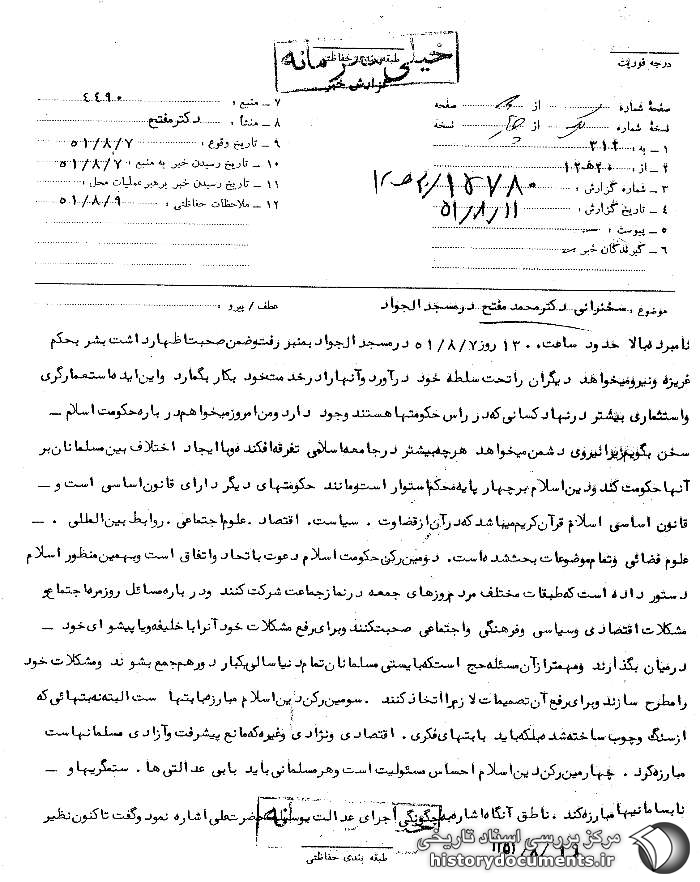 خیلی محرمانه
طبقه‌بندی حفاظتی
گزارش خبر
درجه فوریت
صفحهٔ شماره از صفحه
نسخهٔ شماره یک از چهار نسخه
۱ ـ به : ۳۱۲
۲ ـ از : ۲۰هـ۱۲
۳ ـ شماره گزارش : ۱۵۷۸۰/۲۰هـ۱۲
۴ ـ تاریخ گزارش : ۵۱/۸/۱۱
۵ ـ پیوست :
۶ ـ گیرندگان خبر
۷ ـ منبع : ۴۴۹۰
۸ ـ منشأ : دکتر مفتح
۹ ـ تاریخ وقوع : ۵۱/۸/۷
۱۰ ـ تاریخ رسیدن خبر به منبع : ۵۱/۸/۷
۱۱ ـ تاریخ رسیدن خبر برهبر عملیات محل :
۱۲ ـ ملاحظات حفاظتی : ۵۱/۸/۹
موضوع : سخنرانی دکتر محمد مفتح در مسجد الجواد
عطف / پیرو :
نامبرده بالا حدود ساعت ۱۳۰۰ روز ۵۱/۸/۷ در مسجد الجواد بمنبر رفت و ضمن صحبت اظهار داشت بشر بحکم
غریزه و نیرو میخواهد دیگران را تحت سلطه خود درآورد و آنها را در خدمت خود بکار بگمارد و این ایده استعمارگری
و استثماری بیشتر در نهاد کسانی که در راس حکومتها هستند وجود دارد و من امروز میخواهم در باره حکومت اسلام ـ
سخن بگویم زیرا نیروی دشمن میخواهد هرچه بیشتر در جامعه اسلامی تفرقه افکنده و با ایجاد اختلاف بین مسلمانان بر
آنها حکومت کند و دین اسلام بر چهار پایه محکم استوار است و مانند حکومتهای دیگر دارای قانون اساسی است و ـ
قانون اساسی اسلام قرآن کریم میباشد که در آن از قضاوت . سیاست . اقتصاد . علوم اجتماعی . روابط بین المللی . ـ
علوم فضائی و تمام موضوعات بحث شده است . دومین رکن حکومت اسلام دعوت باتحاد و اتفاق است و بهمین منظور اسلام
دستور داده است که طبقات مختلف مردم روزهای جمعه در نماز جماعت شرکت کنند و در باره مسائل روزمره اجتماع و
مشکلات اقتصادی و سیاسی و فرهنگی و اجتماعی صحبت کنند و برای رفع مشکلات خود آنرا با خلیفه و یا پیشوای خود ـ
درمیان بگذارند و مهمتر از آن مسئله حج است که بایستی مسلمانان تمام دنیا سالی یکبار دور هم جمع بشوند و مشکلات خود
را مطرح سازند و برای رفع آن تصمیمات لازم را اتخاذ کنند . سومین رکن دین اسلام مبارزه با بتها ست البته نه بتهائی که
از سنگ و چوب ساخته شده بلکه باید با بتهای فکری . اقتصادی و نژادی و غیره که مانع پیشرفت و آزادی مسلمانهاست
مبارزه کرد . چهارمین رکن دین اسلام احساس مسئولیت است و هر مسلمانی باید با بی عدالتی ها . ستمگریها و ـ
نابسامانیها مبارزه کند . ناطق آنگاه اشاره به چگونگی اجرای عدالت بوسیله حضرت علی اشاره نمود و گفت تا کنون نظیر
طبقه بندی حفاظتی
مرکز بررسی اسناد تاریخی
historydocuments.ir